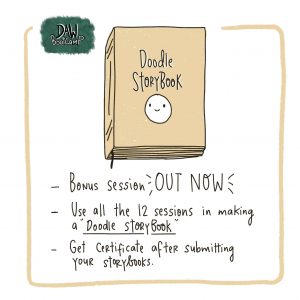 DAW
BOOTCAMP
Doodle
StoryBook
- Bonus Session OUT NOW
- Use all the 12 sessions in making
a "Doodle StoryBook"
- Get Certificate after submitting
your storybooks.